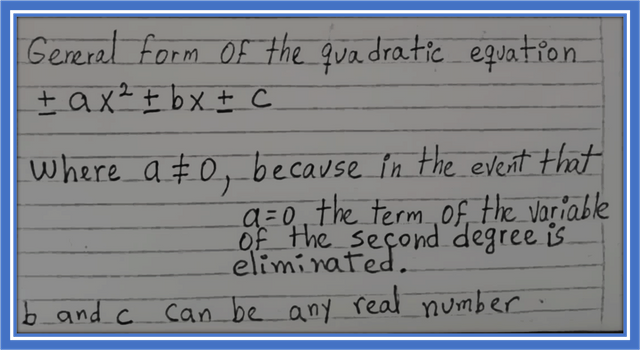 General form of the quadratic equation
± ax² ± bx ± c
Where a ≠ 0, because in the event that
a=0 the term of the variable
of the second degree is
eliminated.
b and c can be any real number.